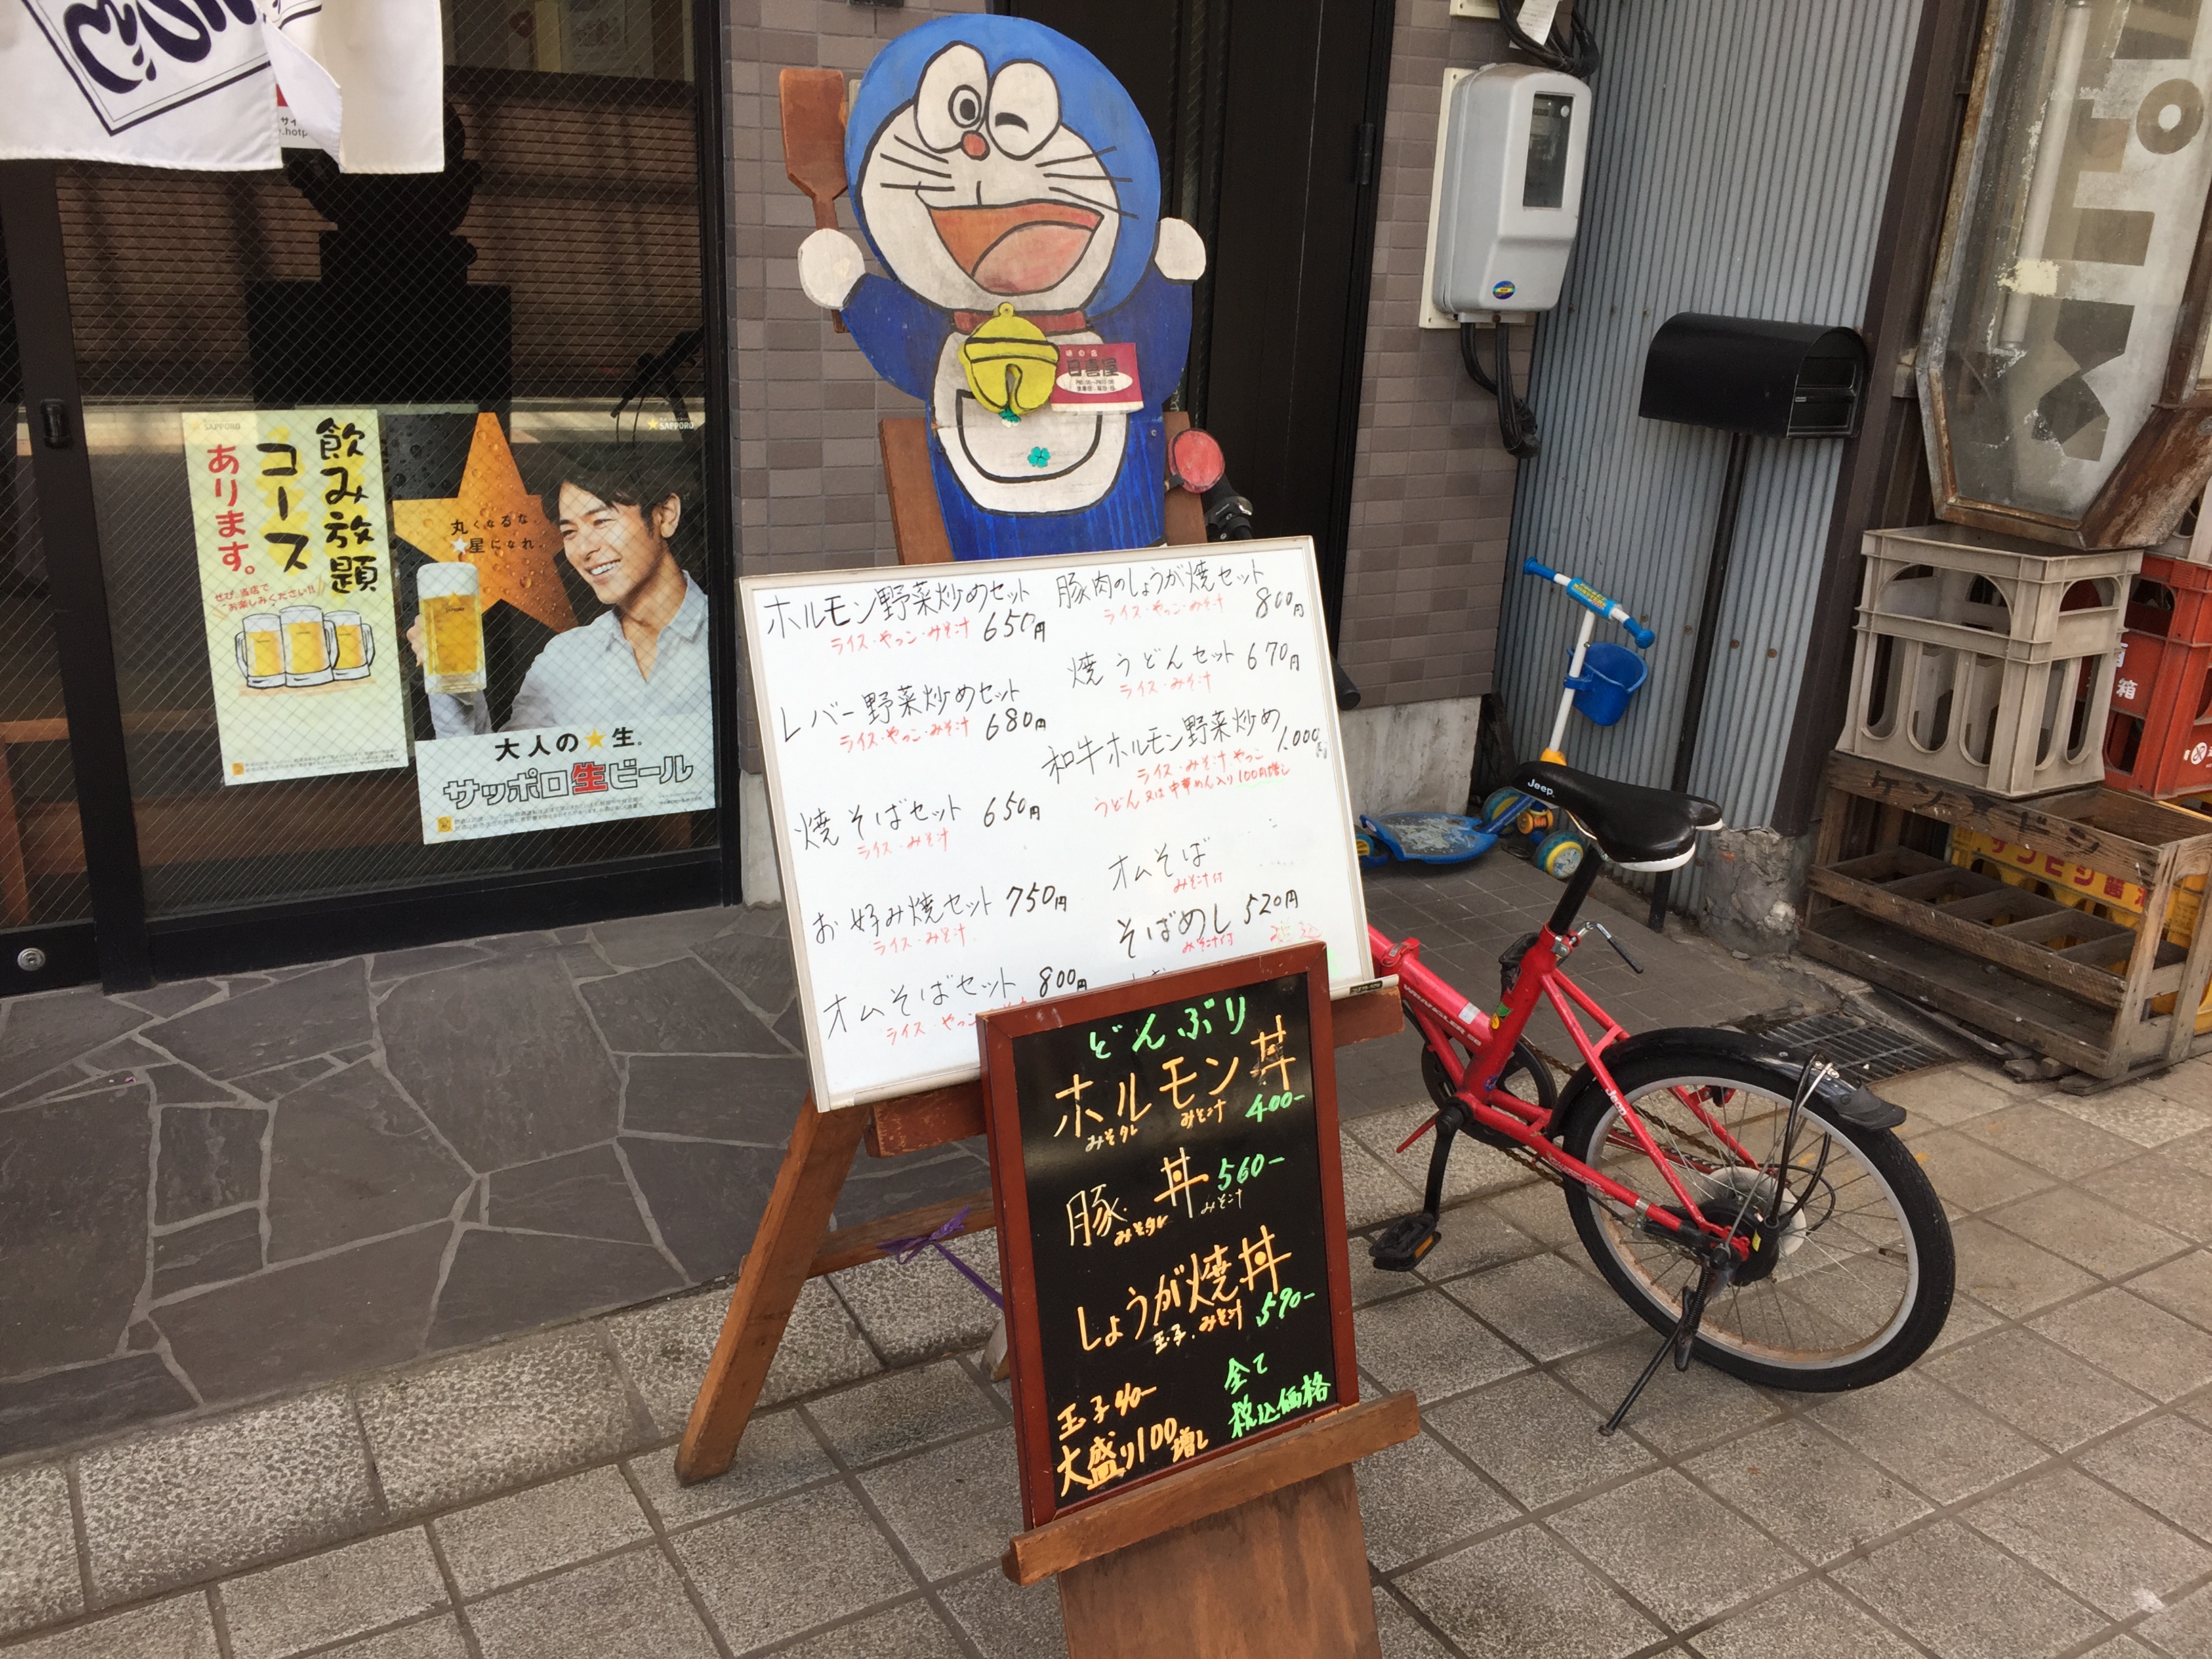 SAPPORO
飲み放題
コース
あります。
ぜひ、当店で
お楽しみください!!
SAPPORO
丸くなるな、
★星になれ。
大人の★生。
サッポロ生ビール
日喜屋
ホルモン野菜炒めセット
ライス・やっこ・みそ汁 650円
レバー野菜炒めセット
ライス・やっこ・みそ汁 680円
焼そばセット 650円
ライス・みそ汁
お好み焼セット 750円
ライス・みそ汁
オムそばセット 800円
ライス・やっこ
豚肉のしょうが焼セット
ライス・やっこ・みそ汁 800円
焼うどんセット 670円
ライス・みそ汁
和牛ホルモン野菜炒め
1.000円
ライス・みそ汁・やっこ
うどん又は中華めん入り100円増し
オムそば
みそ汁付
そばめし 520円
みそ汁付
どんぶり
ホルモン丼
みそタレ みそ汁 400-
豚丼 560-
みそタレ みそ汁
しょうが焼丼
玉子・みそ汁 590-
玉子40-
大盛り100増し
全て
税込価格
Jeep
Jeep
箱
ケンオドシ